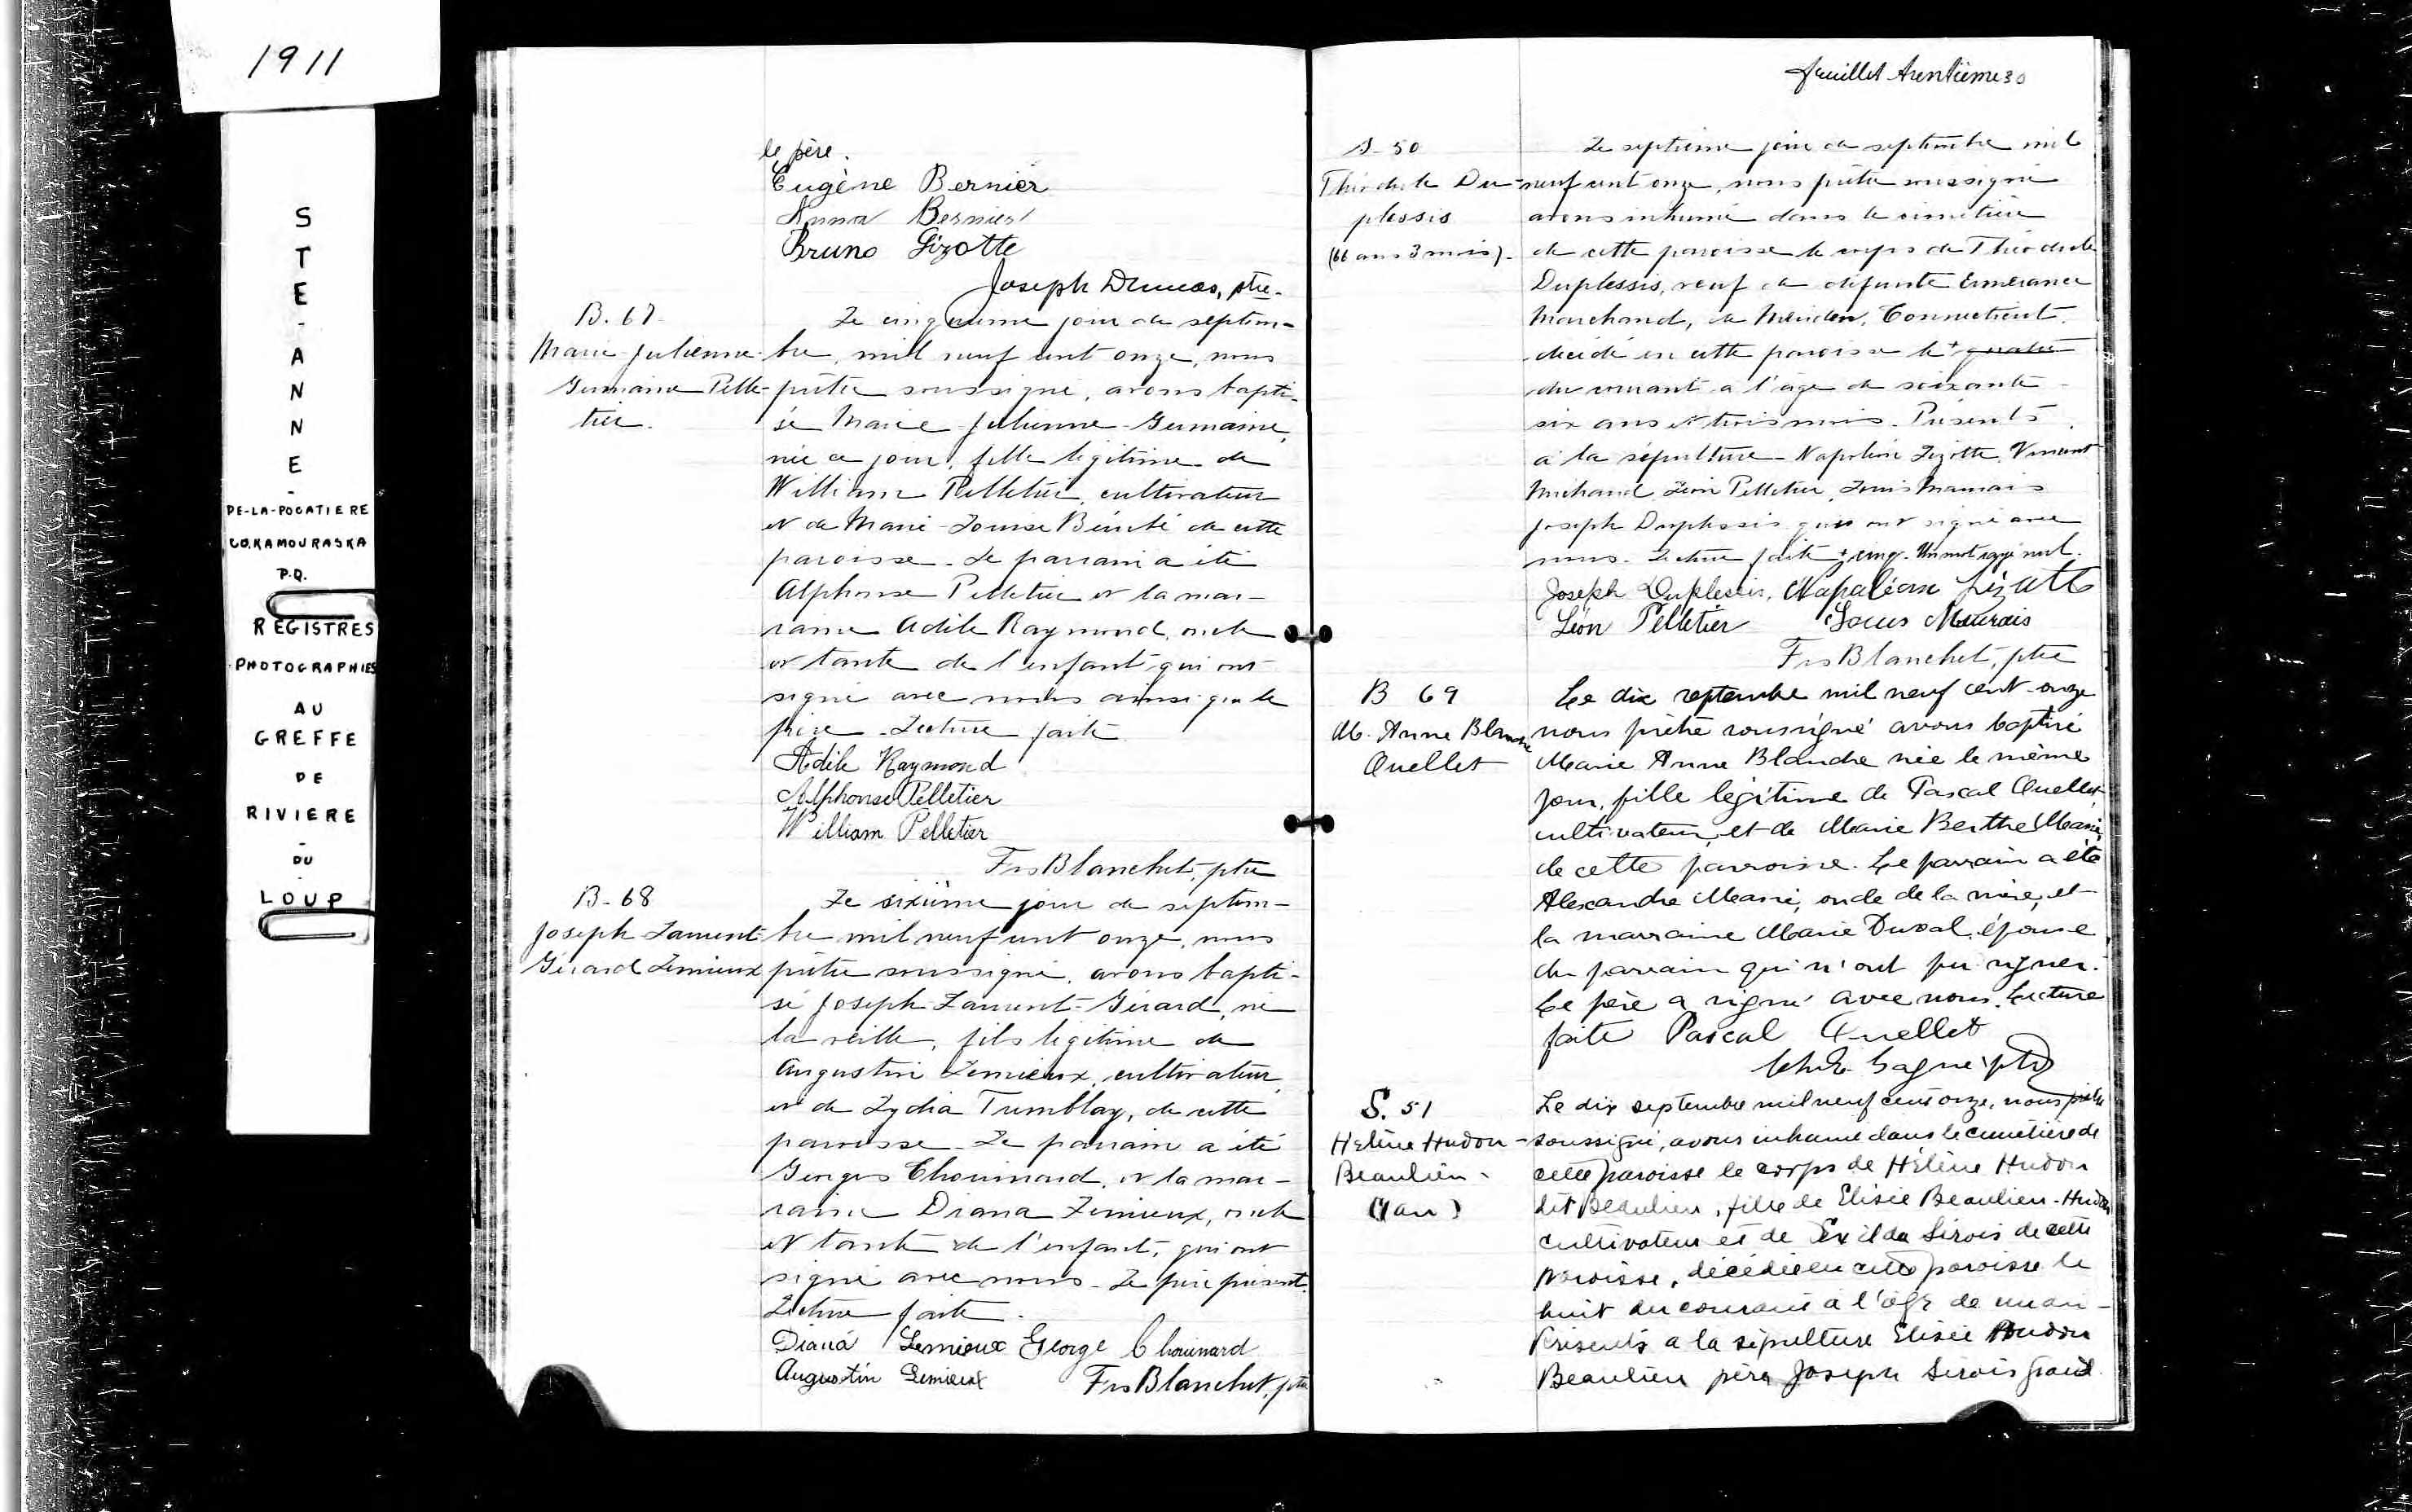 1911
STE-ANNE-
DE-LA-POCATIERE
CO. KAMOURASKA
P.Q.
REGISTRES
PHOTOGRAPHIES
AU
GREFFE
DE
RIVIERE
-
DU
-
LOUP
le père.
Eugène Bernier
Anna Bernier
Bruno Lizotte
Joseph Dumas, ptre.
B. 67
Marie-Julienne-
Germaine Pelle-
tier.
Le cinquième jour de septem-
bre, mil neuf cent onze, nous
prêtre soussigné, avons bapti-
sé Marie-Julienne-Germaine,
née ce jour, fille légitime de
William Pelletier, cultivateur
et de Marie-Louise Bérubé de cette
paroisse. Le parrain a été
Alphonse Pelletier et la mar-
raine Adèle Raymond, oncle
et tante de l'enfant qui ont
signé avec nous ainsi que le
père. Lecture faite
Adèle Raymond
Alphonse Pelletier
William Pelletier
Frs Blanchet, ptre
B-68
Joseph-Laurent-
Gérard Lemieux
Le sixième jour de septem-
bre mil neuf cent onze, nous
prêtre soussigné, avons bapti-
sé Joseph-Laurent-Gérard, né
la veille, fils légitime de
Augustin Lemieux, cultivateur,
et de Lydia Tremblay, de cette
paroisse. Le parrain a été
Georges Chouinard, et la mar-
raine Diana Lemieux, oncle
et tante de l'enfant, qui ont
signé avec nous. Le père présent.
Lecture faite.
Diana Lemieux George Chouinard
Augustin Lemieux Frs Blanchet, ptre
feuillet trentième 30
S-50
Théodule Du-
plessis
(66 ans 3 mois).
Le septième jour de septembre mil
neuf cent onze, nous prêtre soussigné
avons inhumé dans le cimetière
de cette paroisse le corps de Théodule
Duplessis, veuf de défunte Emérance
Marchand, de Meriden, Connecticut.
décédé en cette paroisse le + quatre
du courant à l'âge de soixante
six ans et trois mois. Présents
à la sépulture - Napoléon Lizotte, Vincent
Michaud, Léon Pelletier, Louis Maurais
Joseph Duplessis qui ont signé avec
nous. Lecture faite + cinq. Un mot rayé nul.
Joseph Duplessis, Napoléon Lizotte
Léon Pelletier Louis Maurais
Frs Blanchet, ptre
B 69
M. Anne Blanche
Ouellet
Le dix septembre mil neuf cent onze
nous prêtre soussigné avons baptisé
Marie Anne Blanche née le même
jour, fille légitime de Pascal Ouellet,
cultivateur, et de Marie Berthe
de cette parroisse. Le parrain a été
Alexandre oncle de la mère, et
la marraine Marie Duval, épouse
du parrain qui n'ont pu signer.
Le père a signé avec nous. Lecture
faite Pascal Ouellet
Gagné ptre
S. 51
Hélène Hudon-
Beaulieu-
(1 an)
Le dix septembre mil neuf cent onze, nous prêtre
soussigné, avons inhumé dans le cimetière de
cette paroisse le corps de Hélène Hudon
dit Beaulieu, fille de Elisée Beaulieu-Hudon
cultivateur et de Exilda Sirois de cette
paroisse, décédée en cette paroisse le
huit du courant à l'âge de un an-
Présents à la sépulture Elisée Hudon
Beaulieu père Joseph Sirois grand